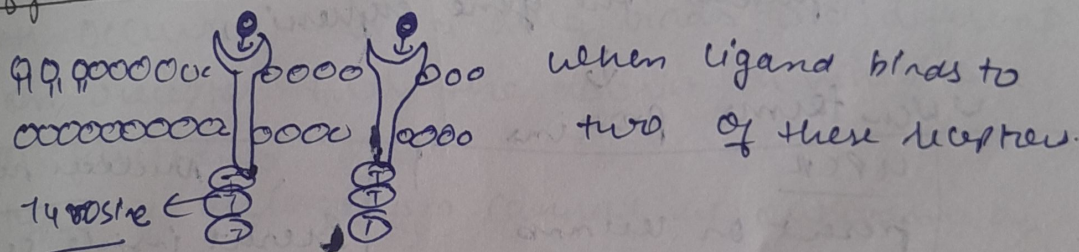 when ligand binds to
two of these receptors.
T T
Tyrosine T T
T T